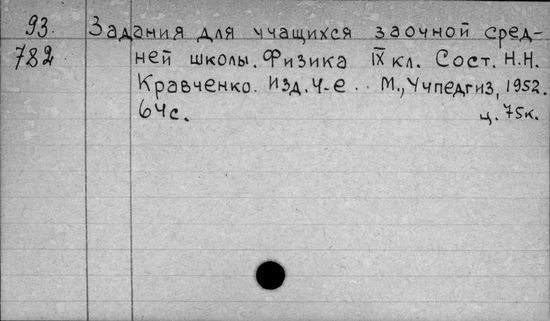 93. Задания для учащихся заочной сред-
782 ней школы. Физика IX кл. Сост. Н.Н.
Кравченко. Изд. 4-е . . М., Учпедгиз, 1952.
64с. ц. 75к.